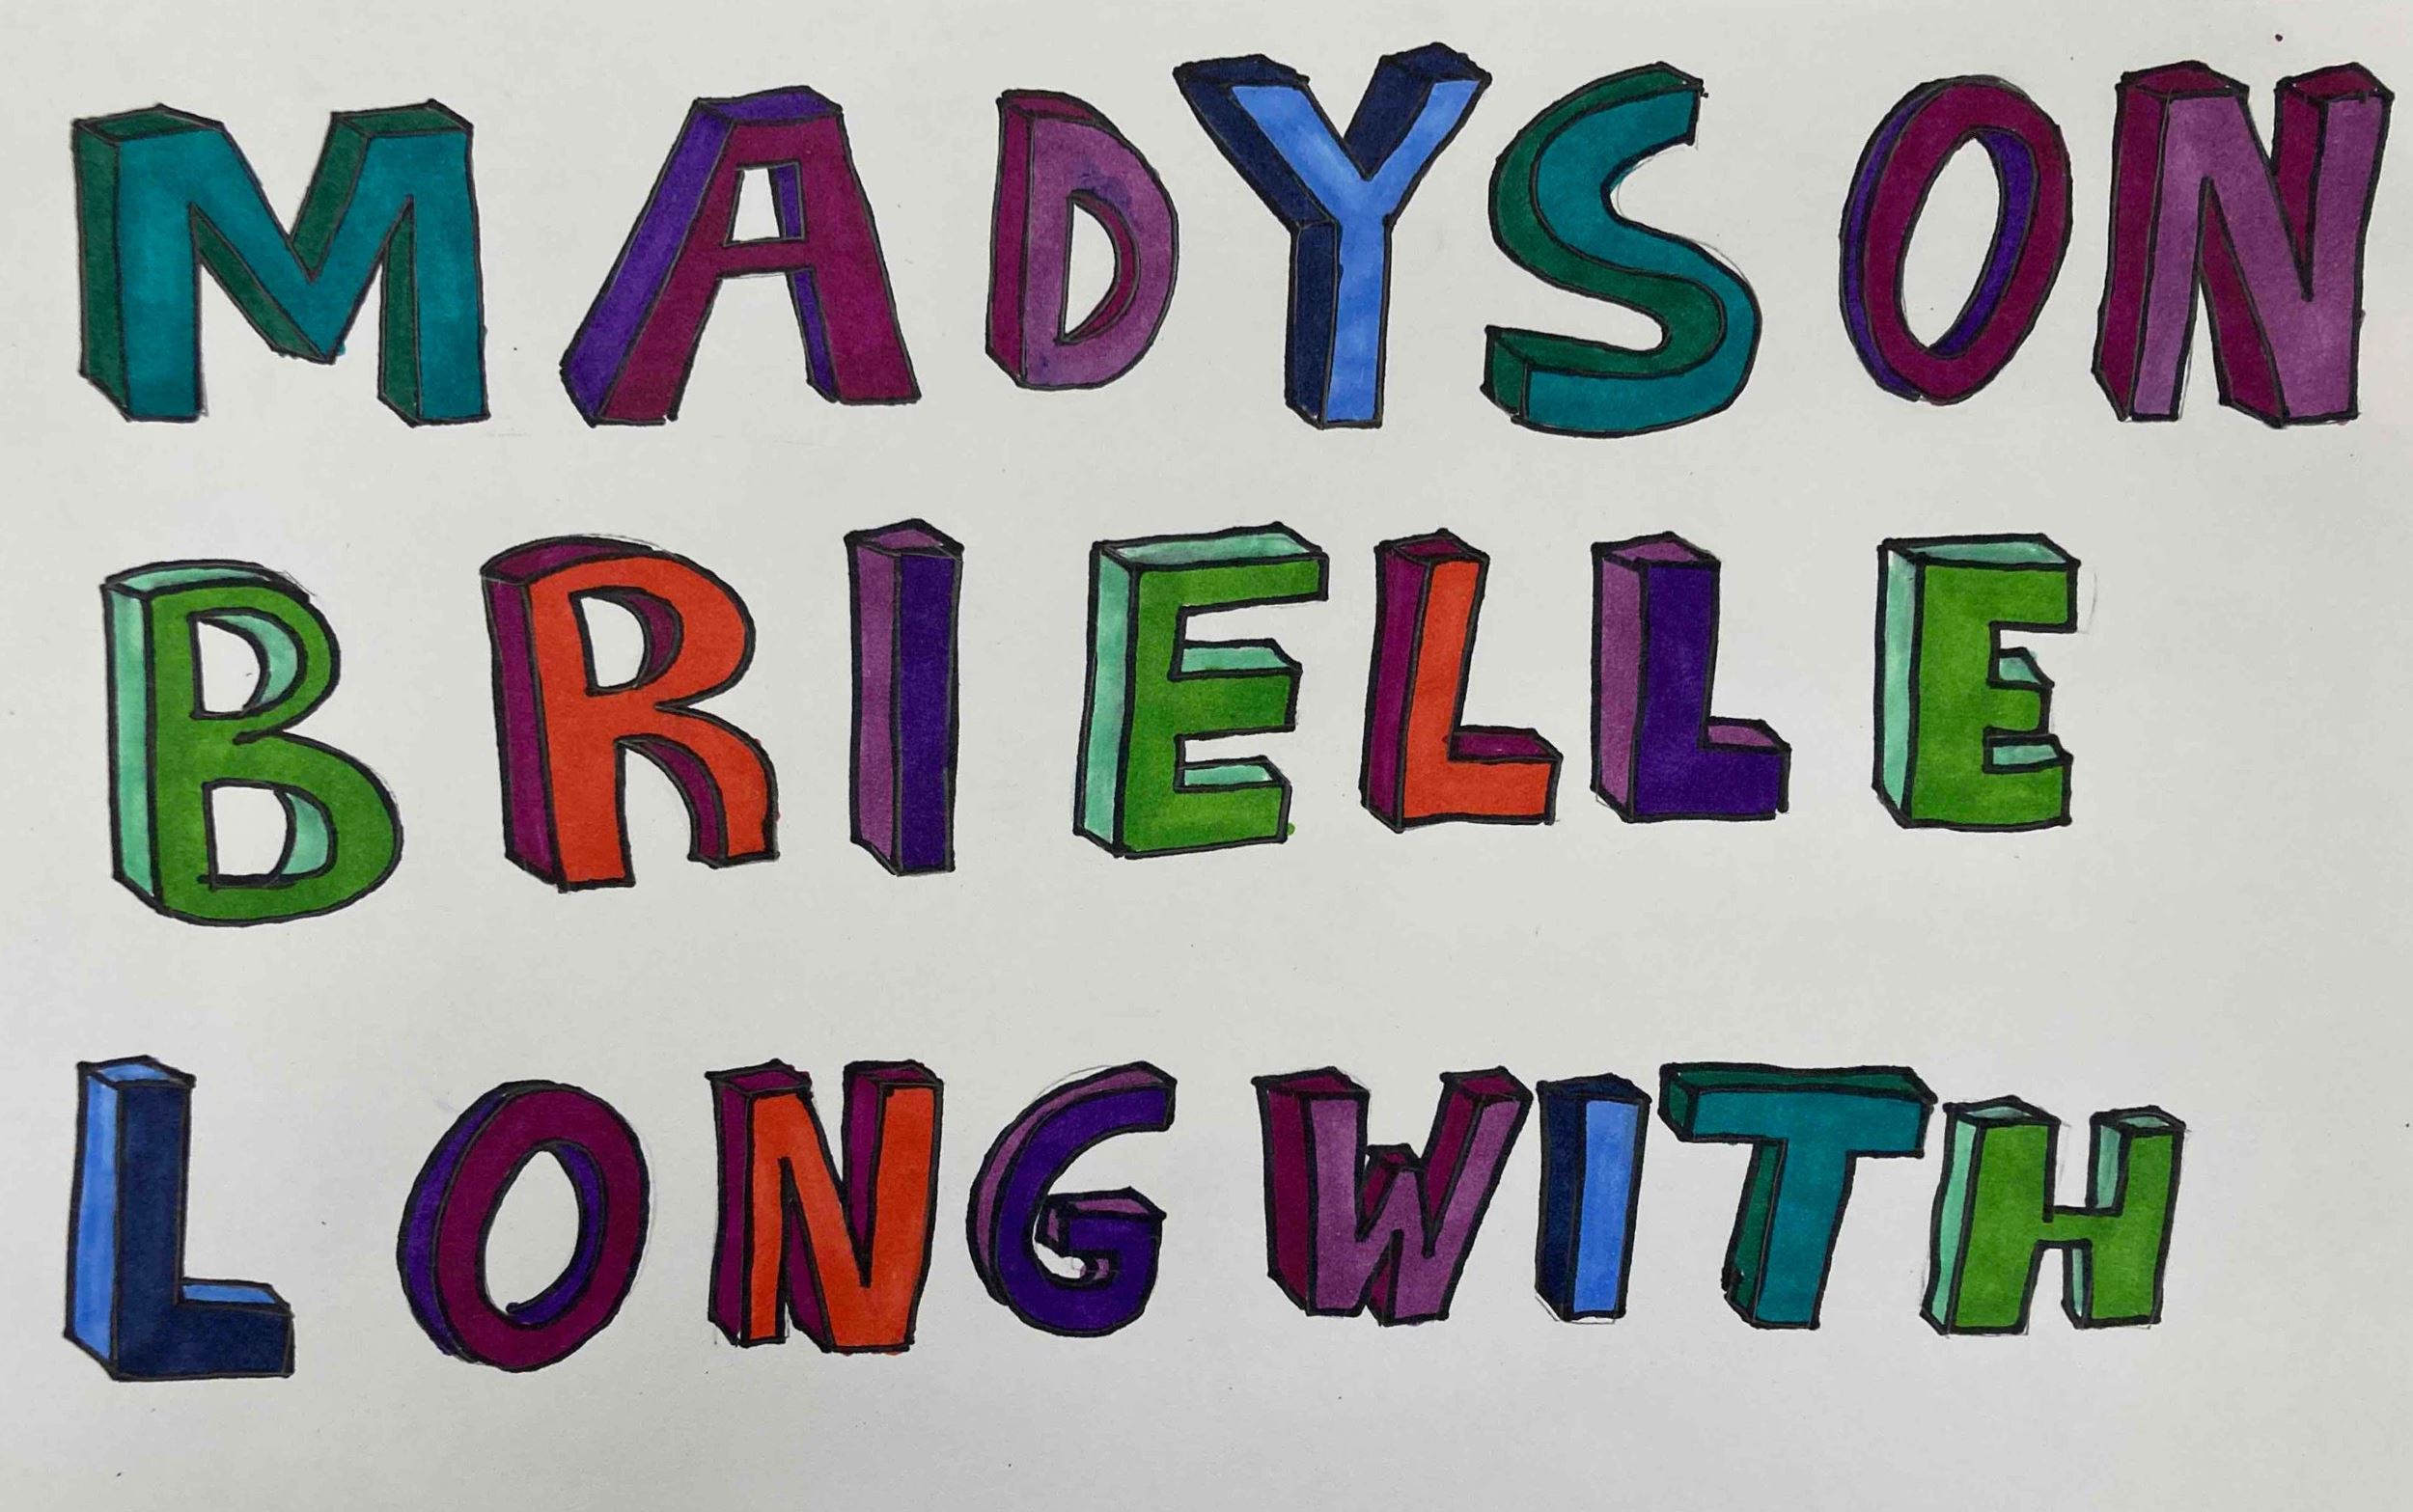 MADYSON
BRIELLE
LONGWITH